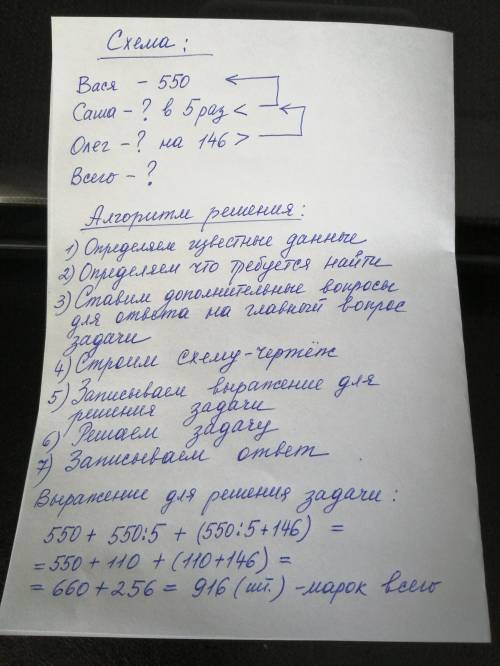 Схема:
Вася – 550
Саша – ? в 5 раз <
Олег – ? на 146 >
Всего – ?
Алгоритм решения:
1) Определяем известные данные
2) Определяем что требуется найти
3) Ставим дополнительные вопросы
для ответа на главный вопрос
задачи
4) Строим схему-чертёж
5) Записываем выражение для
решения задачи
6) Решаем задачу
7) Записываем ответ
Выражение для решения задачи:
550 + 550:5 + (550:5+146) =
= 550 + 110 + (110+146) =
= 660 + 256 = 916 (шт.) – марок всего